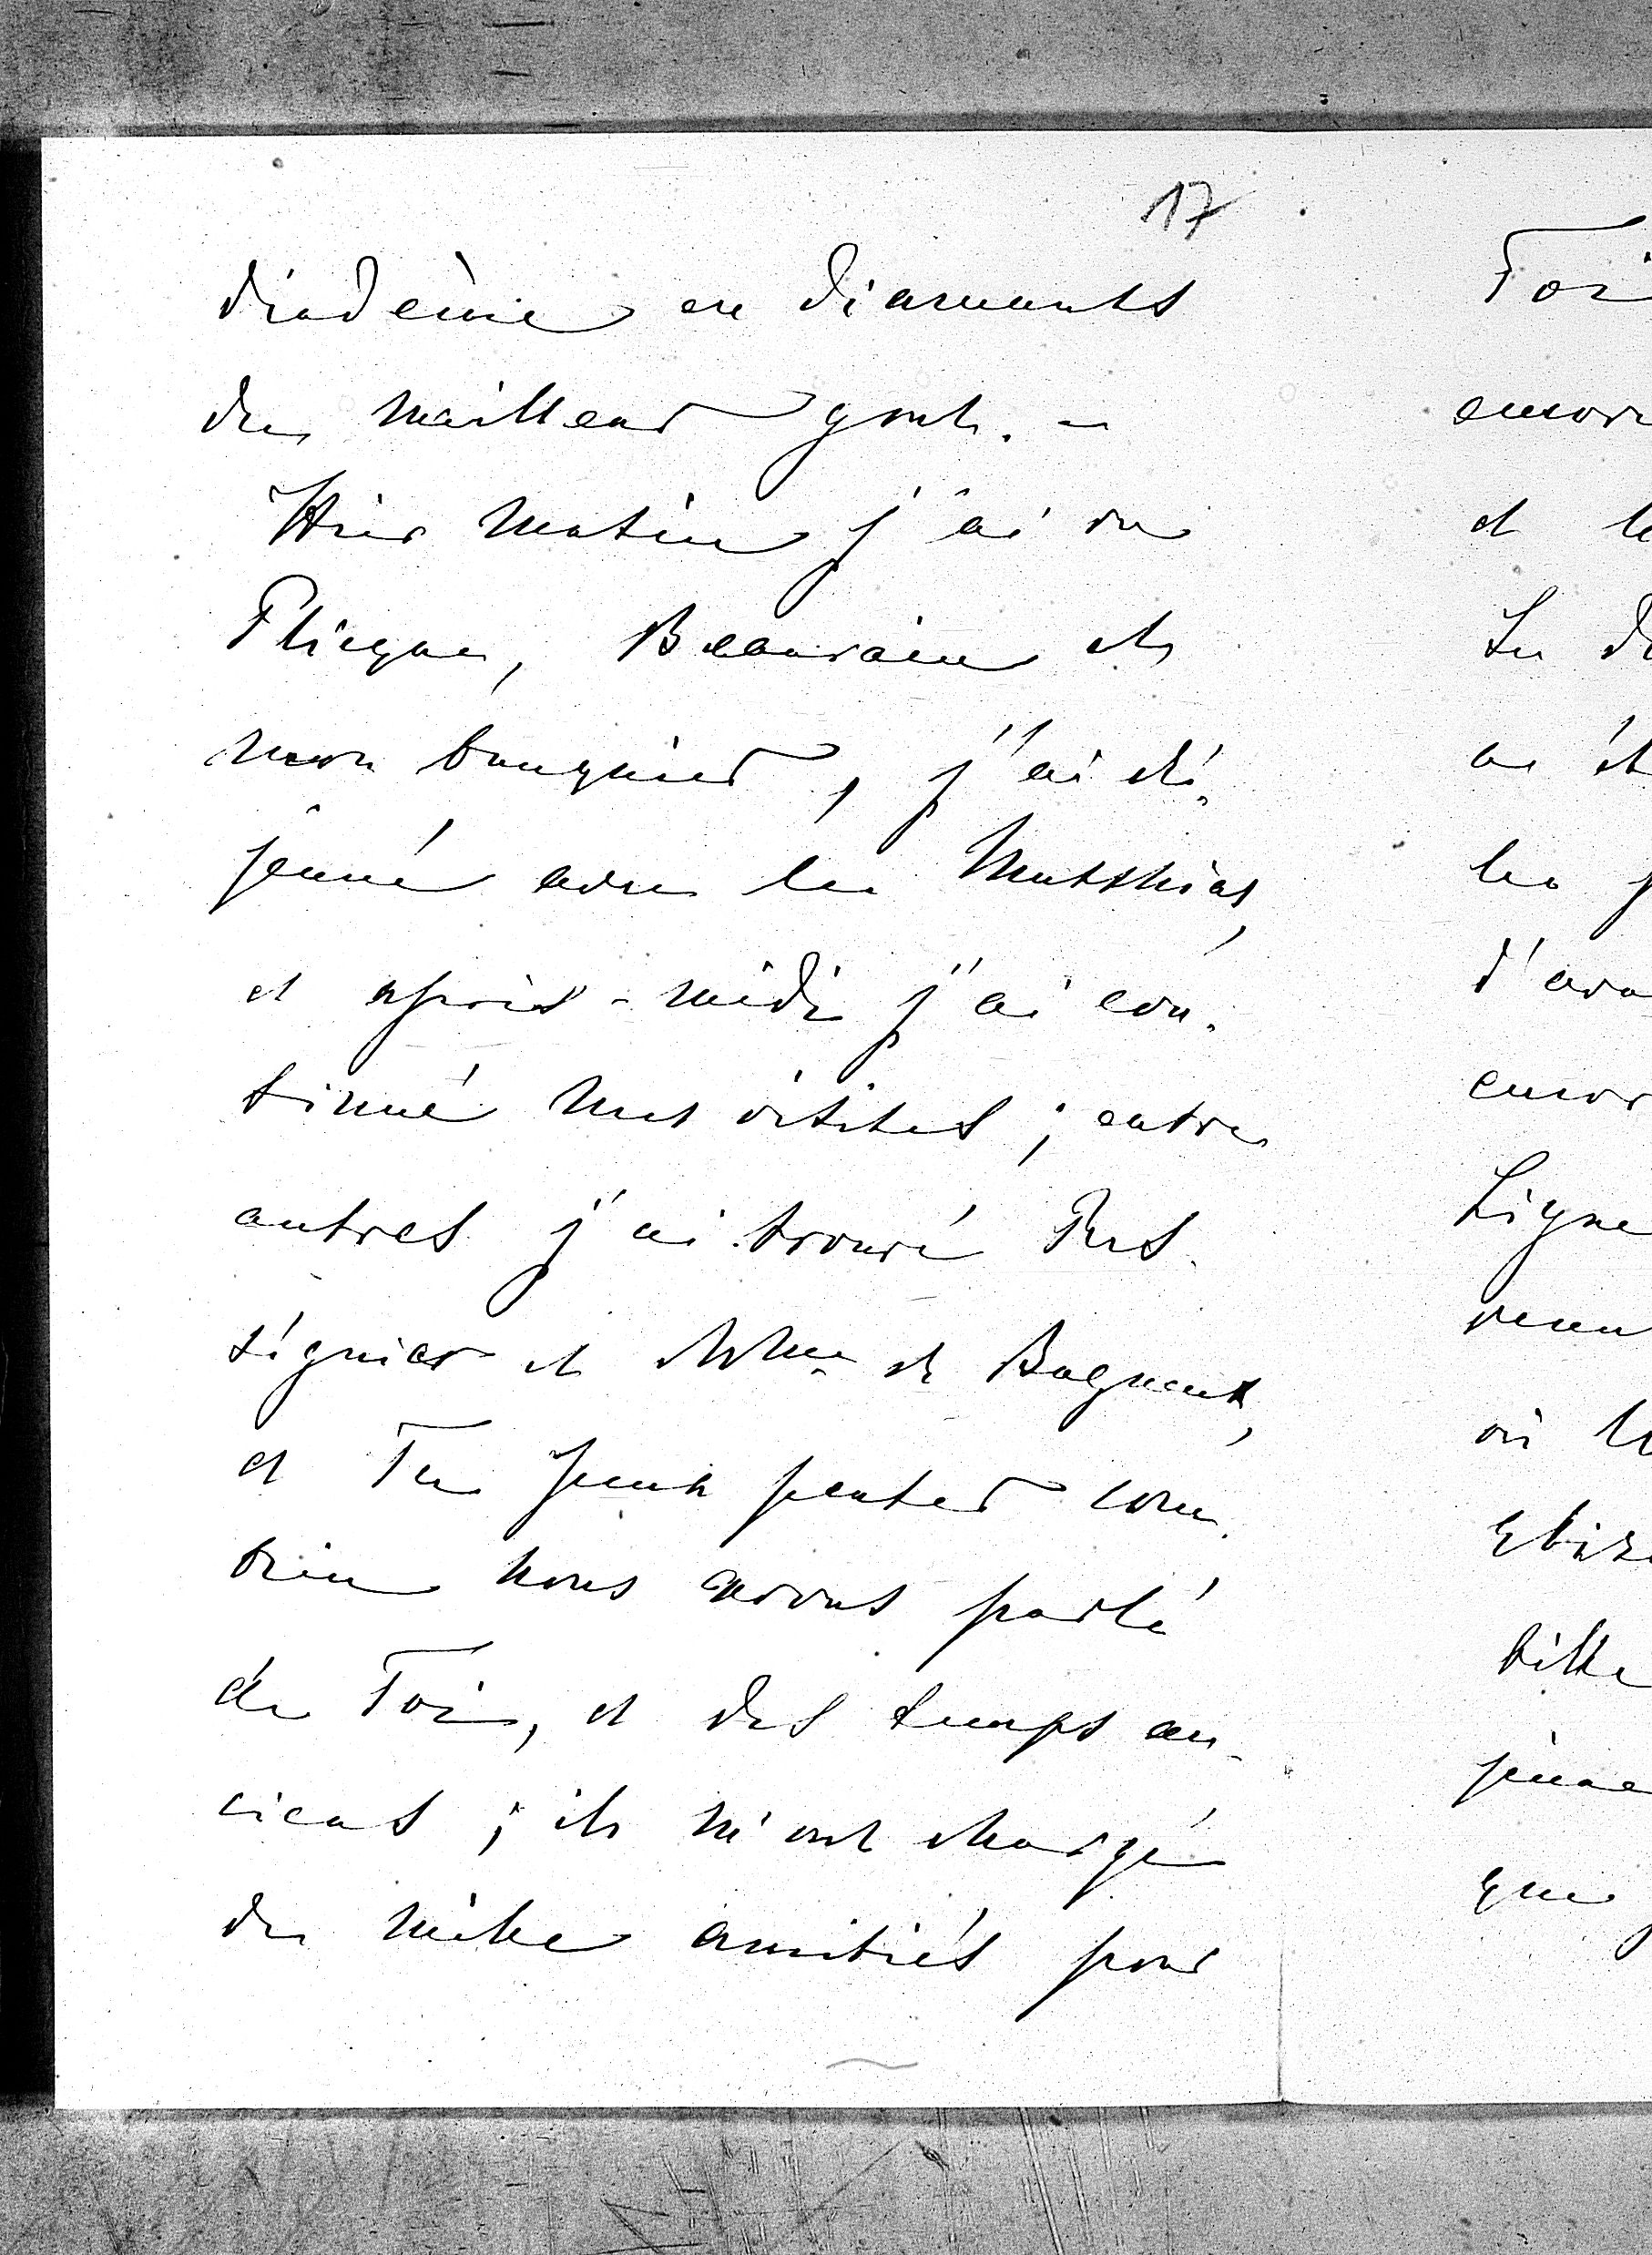 17
diadème en diamants
du meilleur goût. –
Hier matin j'ai vu
Plicque, Beaurain et
mon banquier, j'ai dé-
jeuné avec les Matthias,
et après-midi j'ai con-
tinué mes visites ; entre
autres j'ai trouvé Pus-
signier et Mme de Bagneux,
et Tu peux penser com-
bien nous avons parlé
de Toi, et des temps an-
ciens ; ils m'ont chargé
de mille amitiés pour
Toi
encore
et le
a ét
les
d'ava
encor
Ligne
où
que